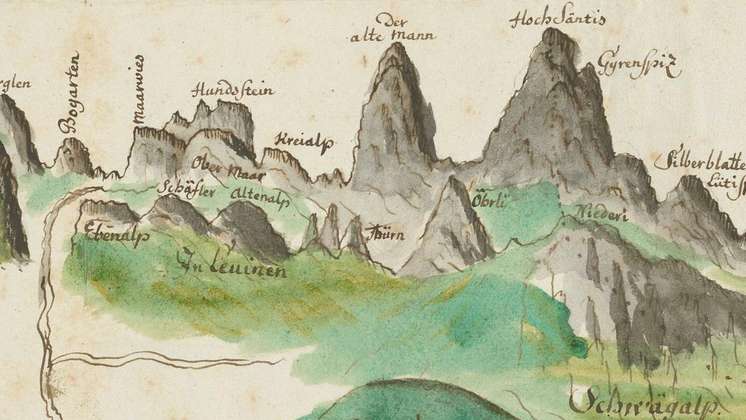 Der
alte Mann
Hoch Säntis
Gÿrenspiz
Bogarten
Maarwies
Hundstein
Kreialp
Ober Maar
Silberblatte
Schäfler
Altenalp
Öhrli
Niederi
Ebenalp
Thürn
In Leuinen
Schwägalp.